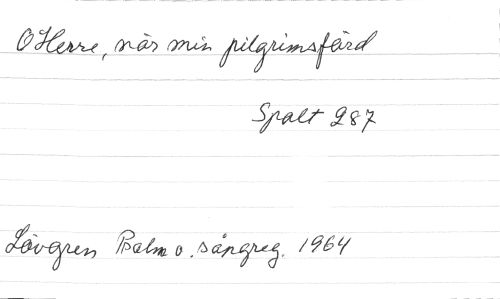 O Herre, när min pilgrimsfärd
Spalt 287
Lövgren Psalm o. sångreg. 1964